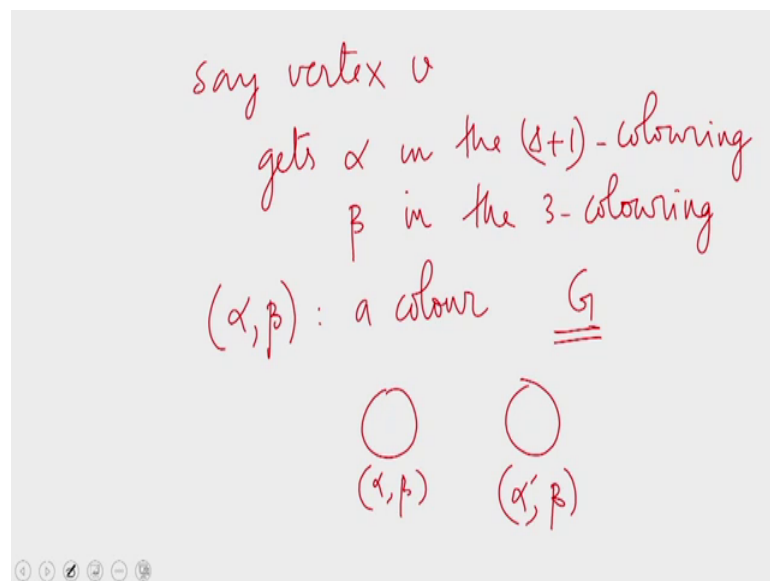 say vertex v
gets α in the (Δ+1)-colouring
β in the 3-colouring
(α, β) : a colour G
(α, β) (α', β)